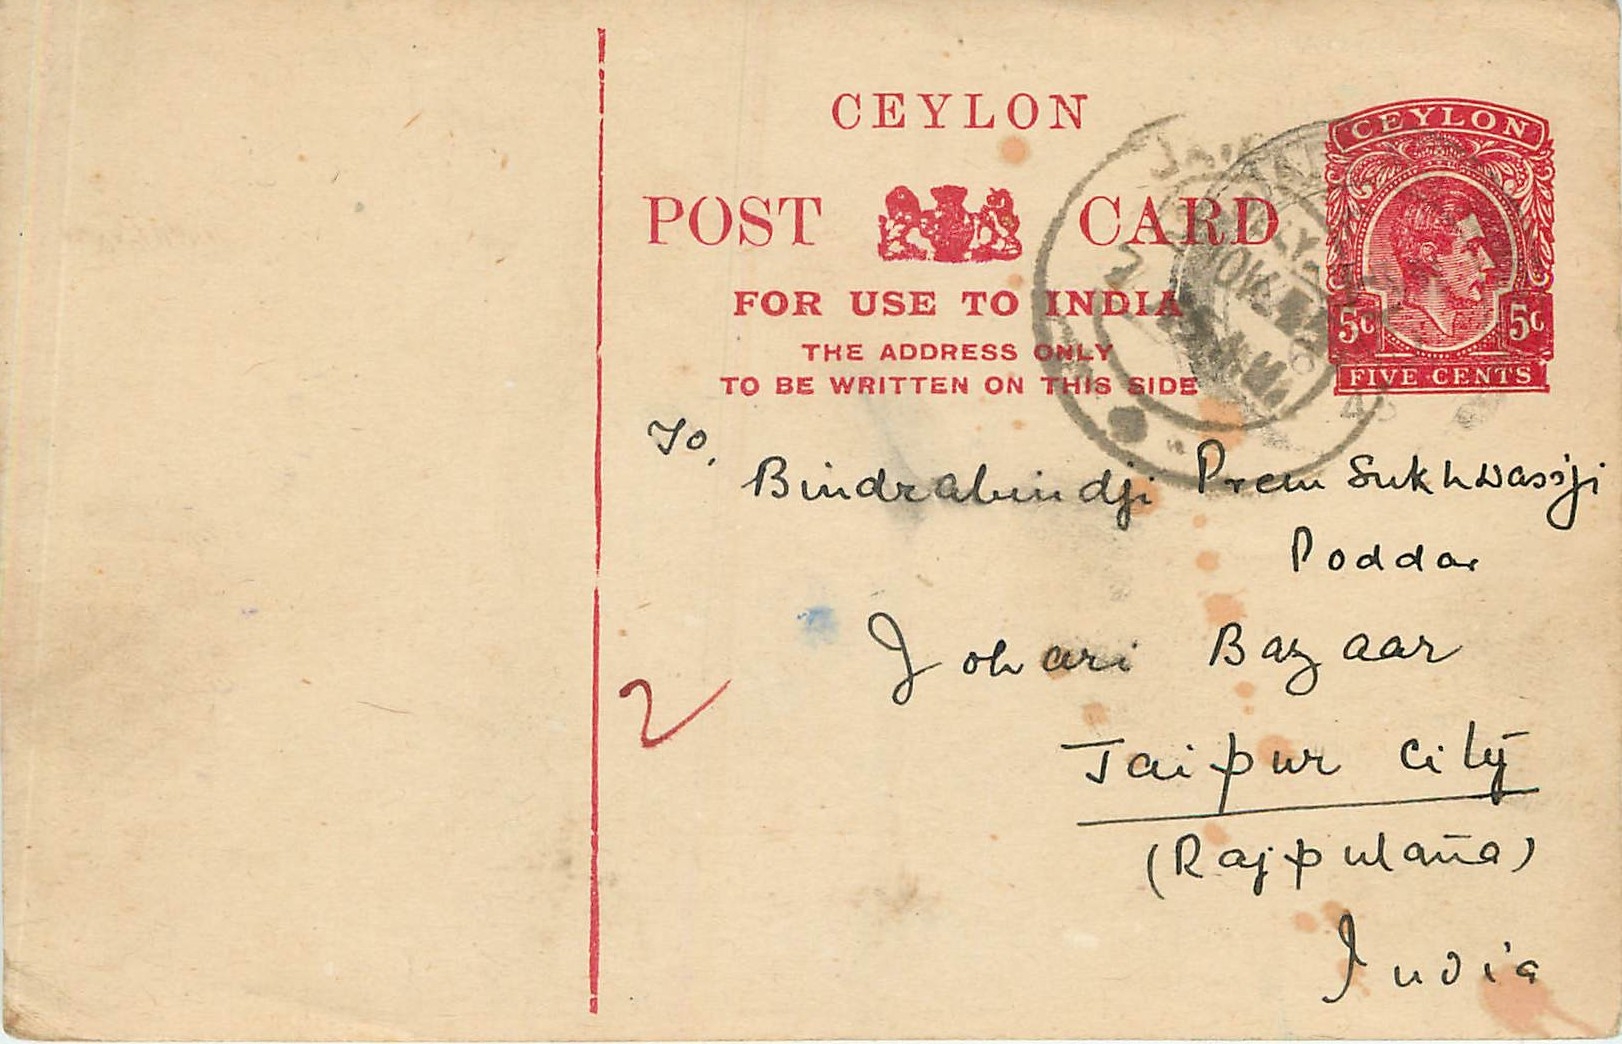 CEYLON
POST CARD
FOR USE TO INDIA
THE ADDRESS ONLY
TO BE WRITTEN ON THIS SIDE
CEYLON
5c 5c
FIVE CENTS
To,
Bindrabundji Prem Sukhdassji
Poddar
Johari Bazaar
Jaipur City
(Rajputana)
India
2